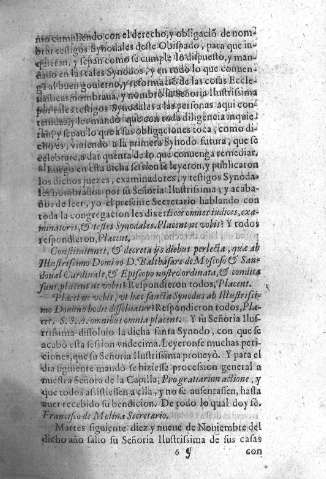 nio cumpliendo con el derecho, y obligació de nom-
brar testigos Synodales deste Obispado, para que in-
quieran, y sepan como se cumple lo dispuesto, y man-
dado en las tales Synodos, y en todo lo que conven-
ga al buen govierno, y reformació de las cosas Eccle-
siasticas nombraua, y nombró su Señoria Illustrissima
por tales testigos Synodales a las personas aqui con-
tenidas, y les mandó que con toda diligencia inquie-
ran, y sepan lo que a sus obligaciones toca, como di-
cho es, viniendo a la primera Synodo futura, que se
celebrare, a dar quenta de lo que convenga remediar,
y luego en esta dicha session se leyeron, y publicaron
los dichos juezes, examinadores, y testigos Synoda-
les nombrados por su Señoria Illustrissima: y acaba-
dos de leer, yo el presente Secretario hablando con
toda la congregacion les dixe: ficos nominatos iudices, exa-
minatores, & testes Synodales. Placent ne vobis? Y todos
respondieron, Placent.
Constitutiones, & decreta ijs diebus perlecta, quæ ab
Illustrissimo Domino D. Balthasare de Moscoso & San-
doual Cardinale, & Episcopo nostro ordinata, & condita
sunt, placent ne vobis? Respondieron todos, Placent.
Placet ne vobis, ut hæc sancta Synodus ab Illustrissi-
mo Domino hodie dissoluatur? Respondieron todos, Pla-
cet, omnibus omnia placent. Y su Señoria Illus-
trissima dissoluio la dicha santa Synodo, con que se
acabó esta session vndecima. Leyeronse muchas peti-
ciones, que su Señoria Illustrissima proueyò. Y para el
dia siguiente mandò se hiziesse procession general a
nuestra Señora de la Capilla, Pro gratiarum actione, y
que todos assistiessen a ella, y no se ausentassen, hasta
auer recebido su bendicion. De todo lo qual doy fè.
Francisco de Molina Secretario.
Martes siguiente diez y nueue de Nouiembre del
dicho año salio su Señoria Illustrissima de sus casas
con